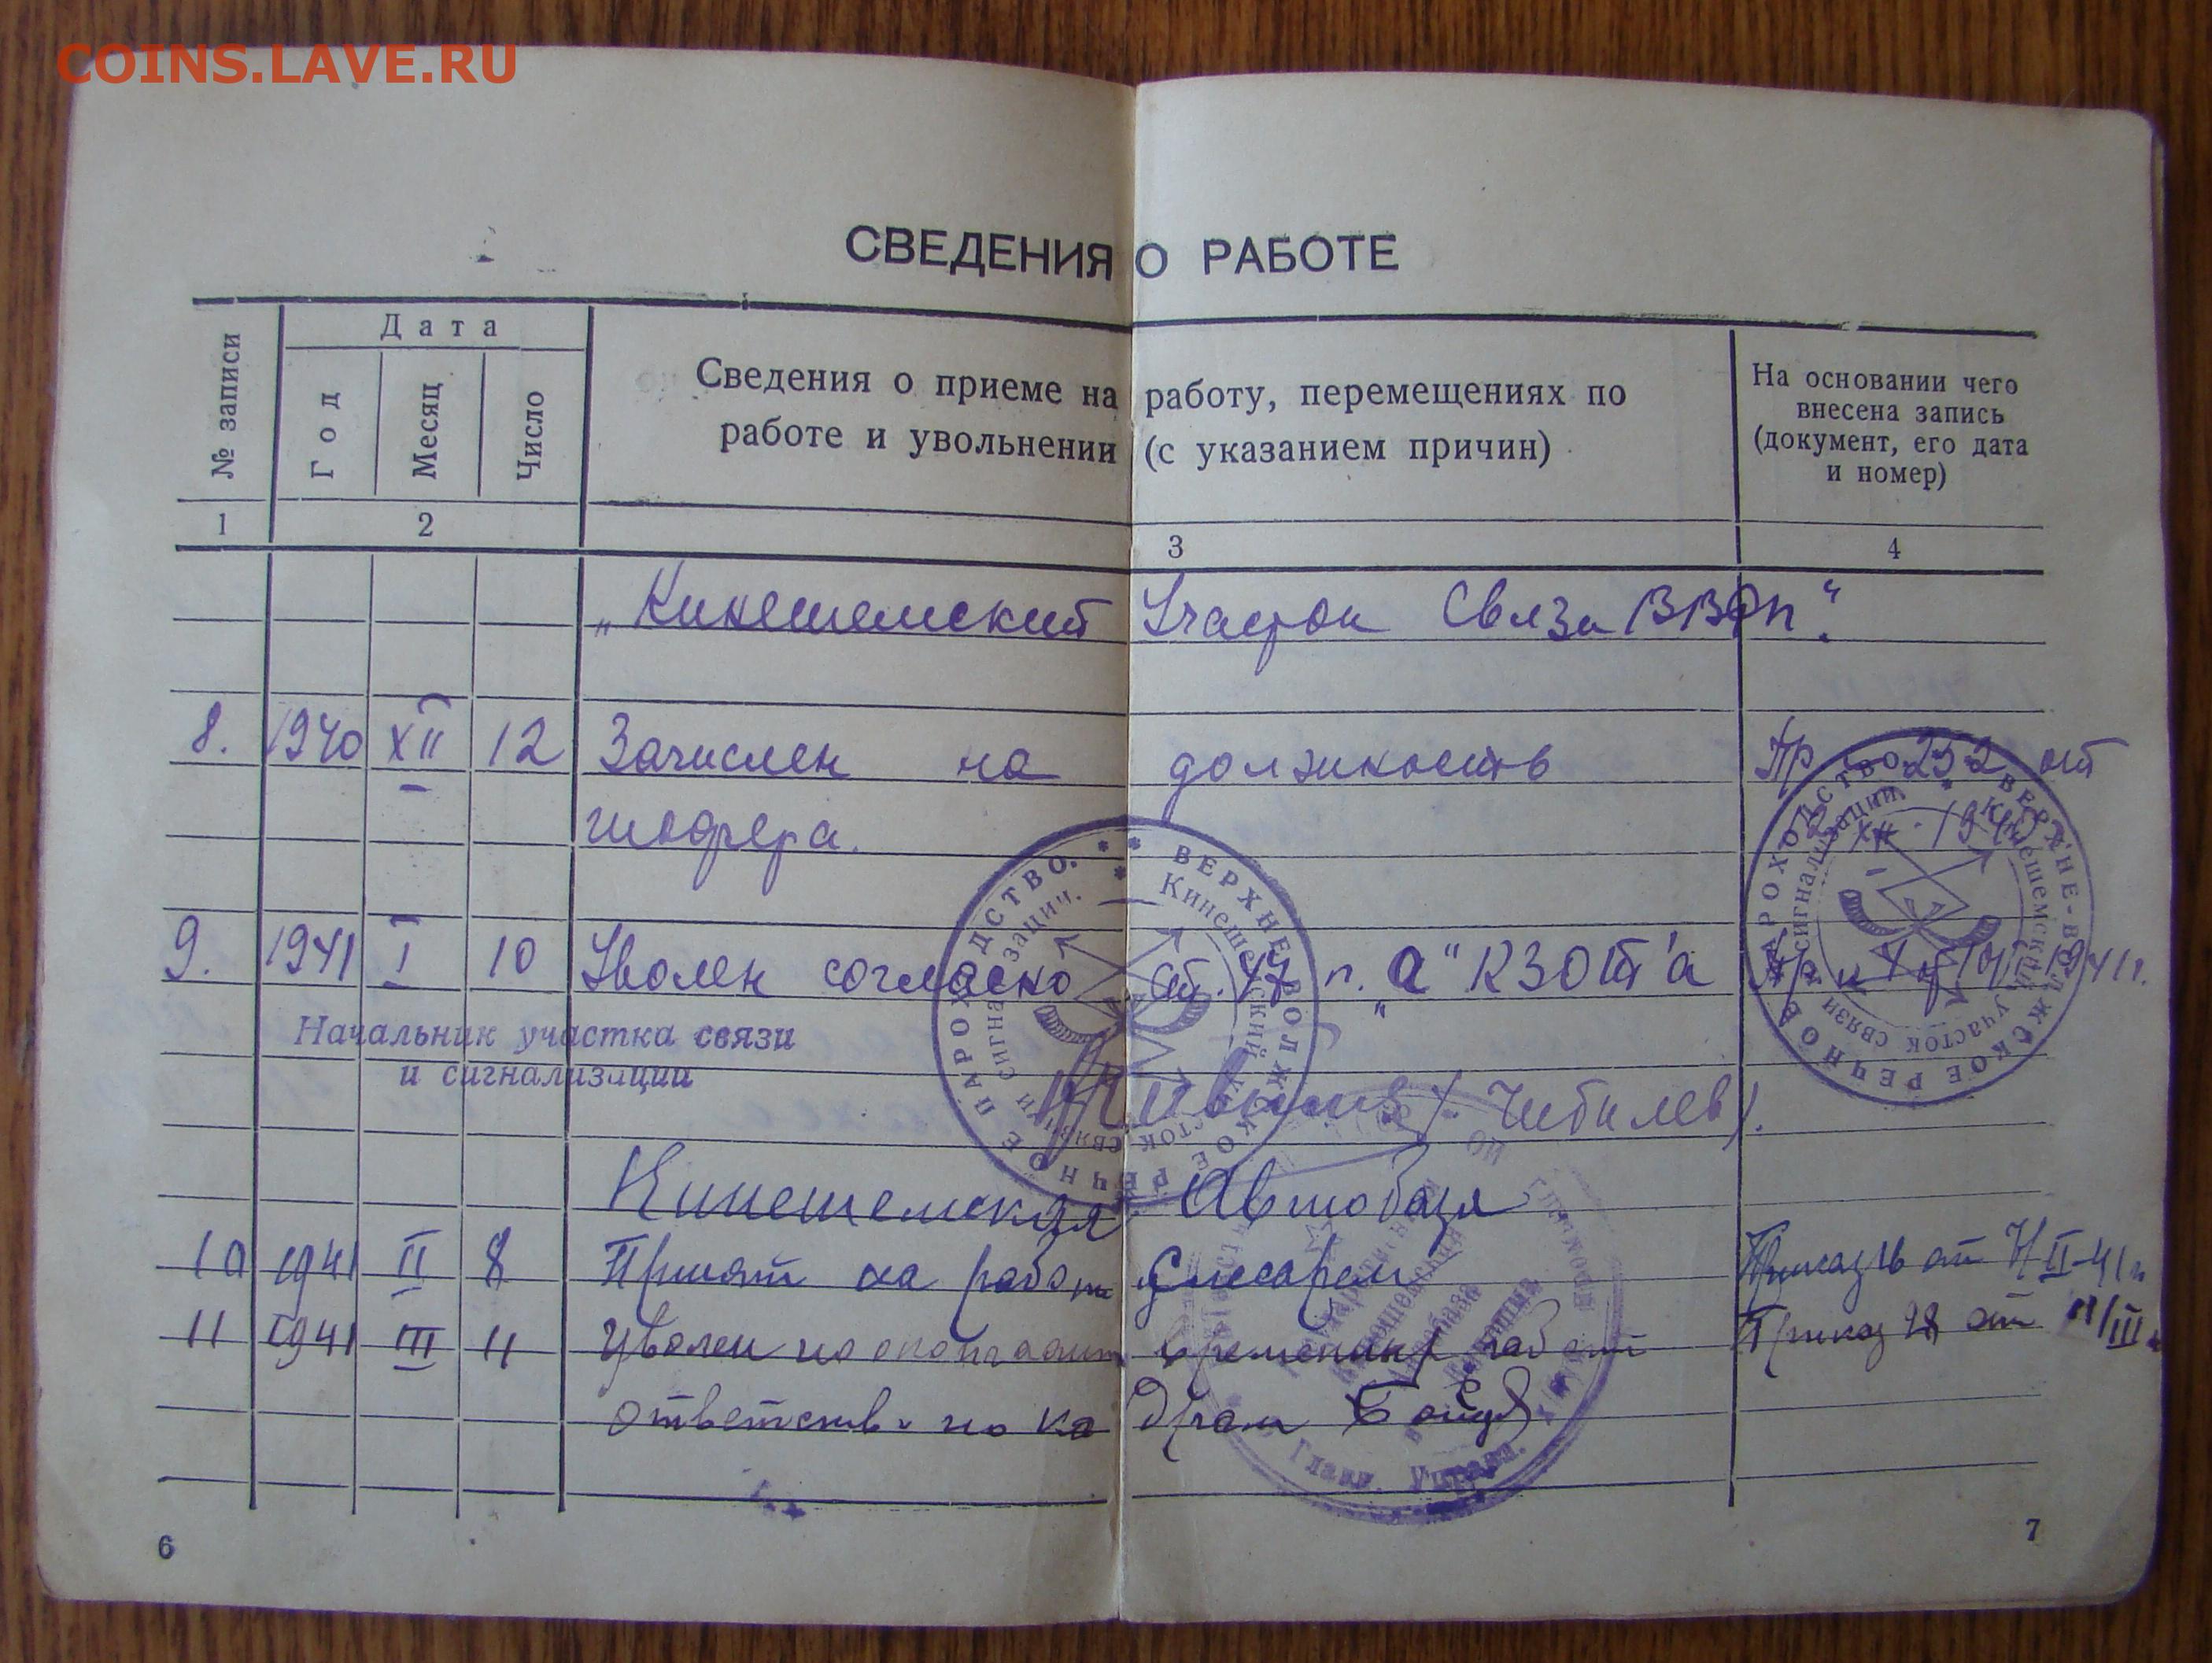 COINS.LAVE.RU
СВЕДЕНИЯ О РАБОТЕ
№ записи
Дата
Год
Месяц
Число
Сведения о приеме на работу, перемещениях по
работе и увольнении (с указанием причин)
На основании чего
внесена запись
(документ, его дата
и номер)
1 2 3 4
„Кинешемский Участок Связи ВВРП“.
8. 1940 XII 12 Зачислен на должность Пр 252 от
шофера.
9. 1941 I 10 Уволен согласно ст. 47 п. „а“ КЗОТ'а
Начальник участка связи
и сигнализации
/Чибилев/.
ВЕРХНЕ-ВОЛЖСКОЕ РЕЧНОЕ ПАРОХОДСТВО
Кинешемский участок связи и сигнализации.
ВЕРХНЕ-ВОЛЖСКОЕ РЕЧНОЕ ПАРОХОДСТВО
Кинешемский участок связи и сигнализации.
Кинешемская Автобаза
10 1941 II 8 Принят на работу Слесарем Приказ 16 от II-41г
11 1941 III 11 Уволен по временну работ Приказ 28 от 11/III
ответств. по кадрам
Главн. Управл.
6
7